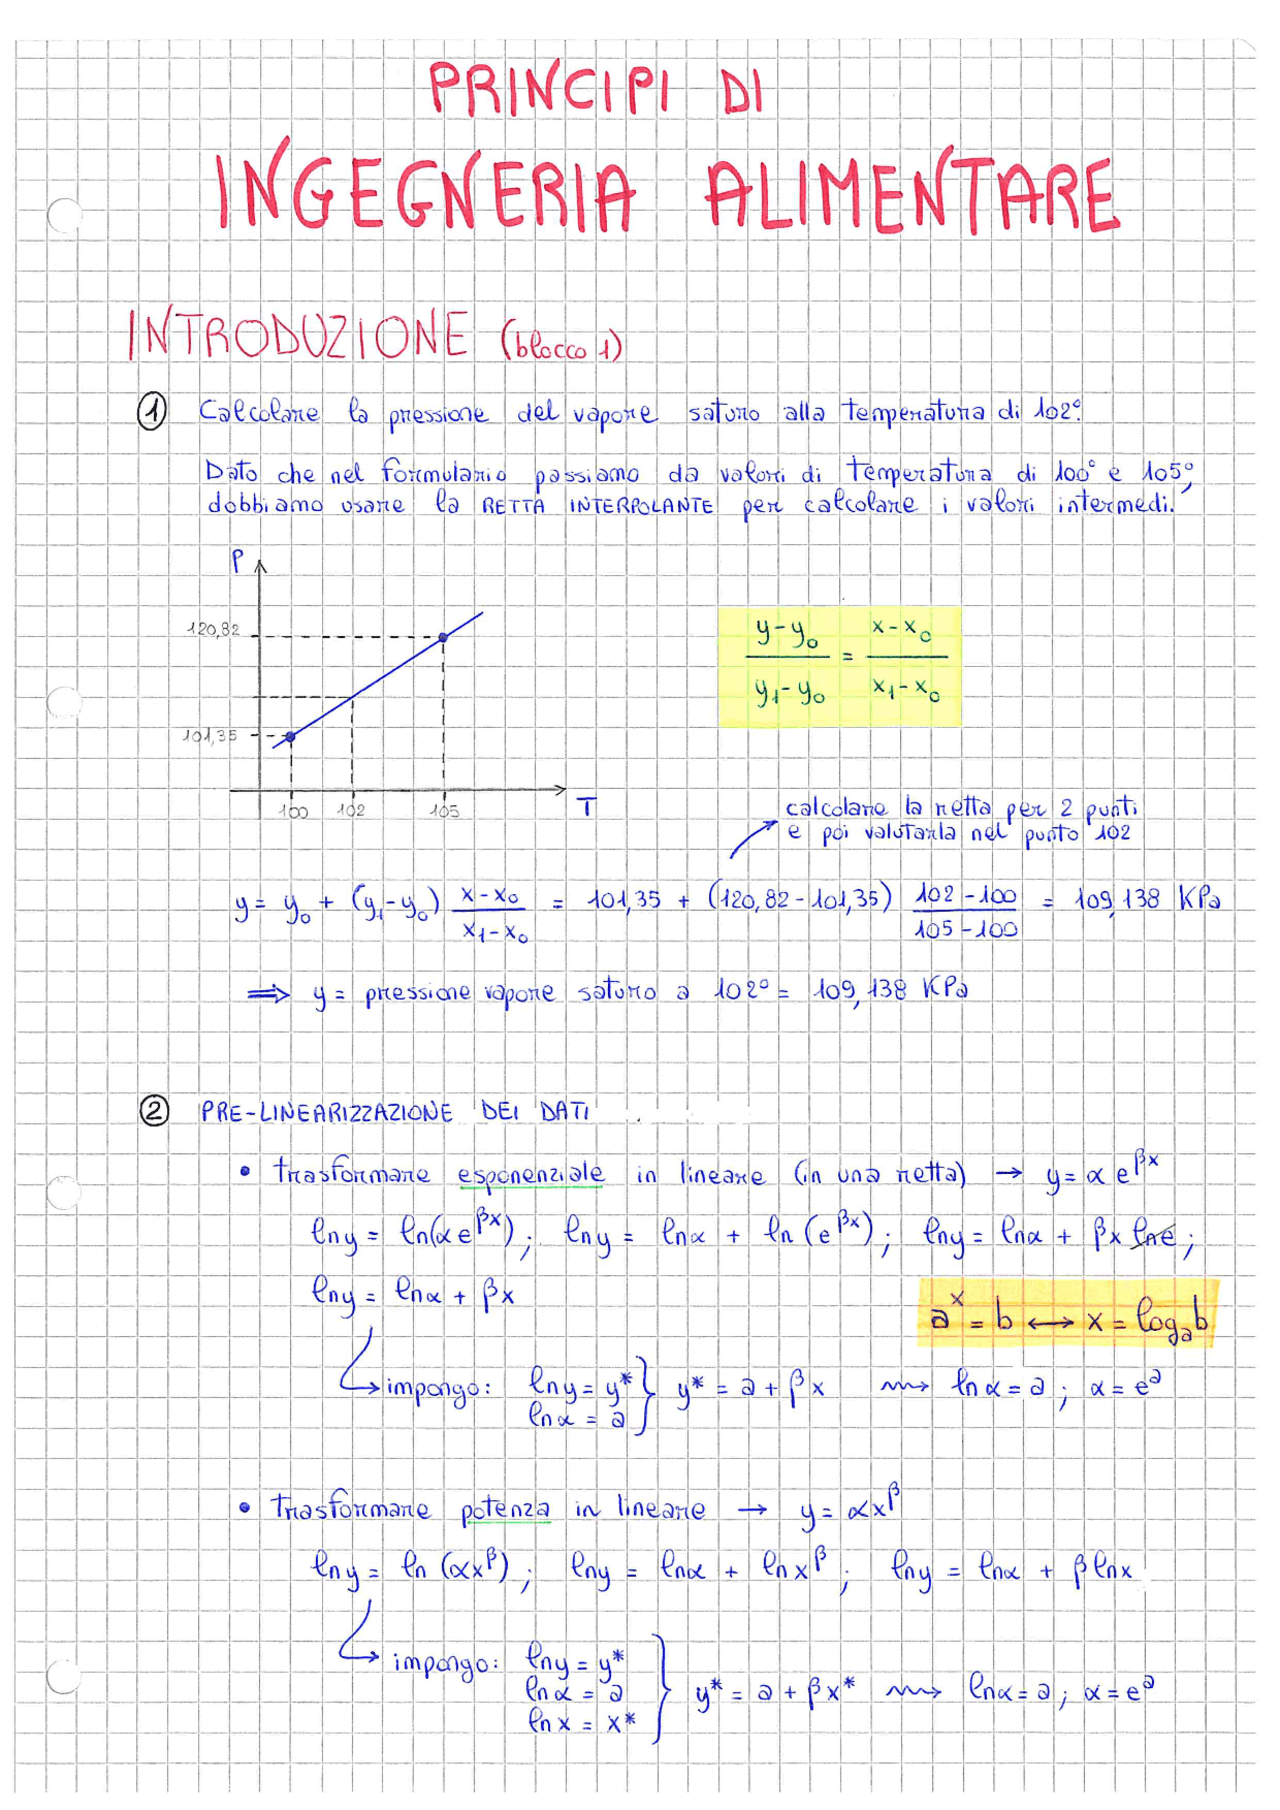 PRINCIPI DI
INGEGNERIA ALIMENTARE
INTRODUZIONE (blocco 1)
① Calcolare la pressione del vapore saturo alla temperatura di 102°.
Dato che nel formulario passiamo da valori di temperatura di 100° e 105°,
dobbiamo usare la RETTA INTERPOLANTE per calcolare i valori intermedi.
P
120,82
101,35
100 102 105 T
(y-y₀)/(y₁-y₀) = (x-x₀)/(x₁-x₀)
calcolare la retta per 2 punti
e poi valutarla nel punto 102
y = y₀ + (y₁-y₀) (x-x₀)/(x₁-x₀) = 101,35 + (120,82-101,35) (102-100)/(105-100) = 109,138 KPa
⇒ y = pressione vapore saturo a 102° = 109,138 KPa
② PRE-LINEARIZZAZIONE DEI DATI
• trasformare esponenziale in lineare (in una retta) → y = α e^βx
ln y = ln(α e^βx); ln y = ln α + ln (e^βx); ln y = ln α + βx ln e;
ln y = ln α + βx
a^x = b ↔ x = logₐb
impongo: ln y = y* } y* = a + βx ⟿ ln α = a; α = e^a
ln α = a
• trasformare potenza in lineare → y = αx^β
ln y = ln (αx^β); ln y = ln α + ln x^β; ln y = ln α + β ln x
impongo: ln y = y*
ln α = a } y* = a + βx* ⟿ ln α = a; α = e^a
ln x = x*